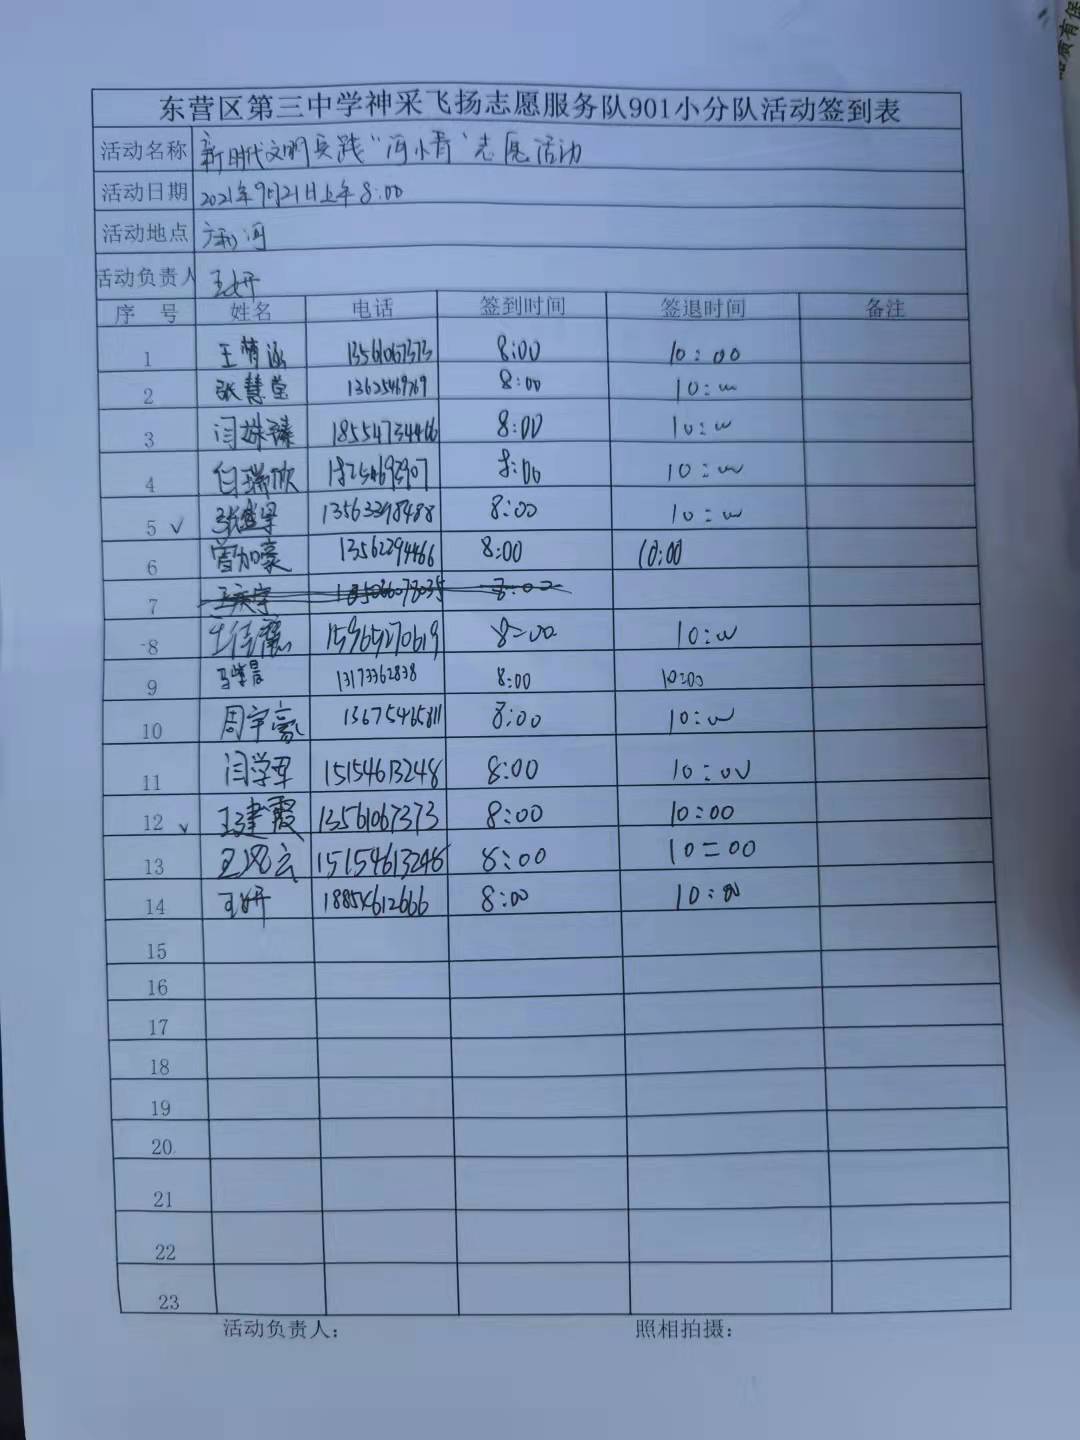 东营区第三中学神采飞扬志愿服务队901小分队活动签到表
活动名称 新时代文明实践“河小青”志愿活动
活动日期 2021年9月21日上午8:00
活动地点 广利河
活动负责人 王妍
序 号 姓名 电话 签到时间 签退时间 备注
1 王 13561067373 8:00 10:00
2 张慧莹 13625469769 8:00 10:00
3 闫姝臻 18554734466 8:00 10:00
4 白瑞欣 8:00 10:00
5 √ 张 13563398488 8:00 10:00
6 曾加豪 13562294466 8:00 10:00
7 王庆宇 8:00
8 王佳 15965270619 8:00 10:00
9 马 晨 13173362838 8:00 10:00
10 周宇豪 13675465811 8:00 10:00
11 闫学军 15154613248 8:00 10:00
12 √ 王建霞 13561067373 8:00 10:00
13 王风云 15154613246 8:00 10:00
14 王妍 18854612666 8:00 10:00
15
16
17
18
19
20
21
22
23
活动负责人： 照相拍摄：
质有保